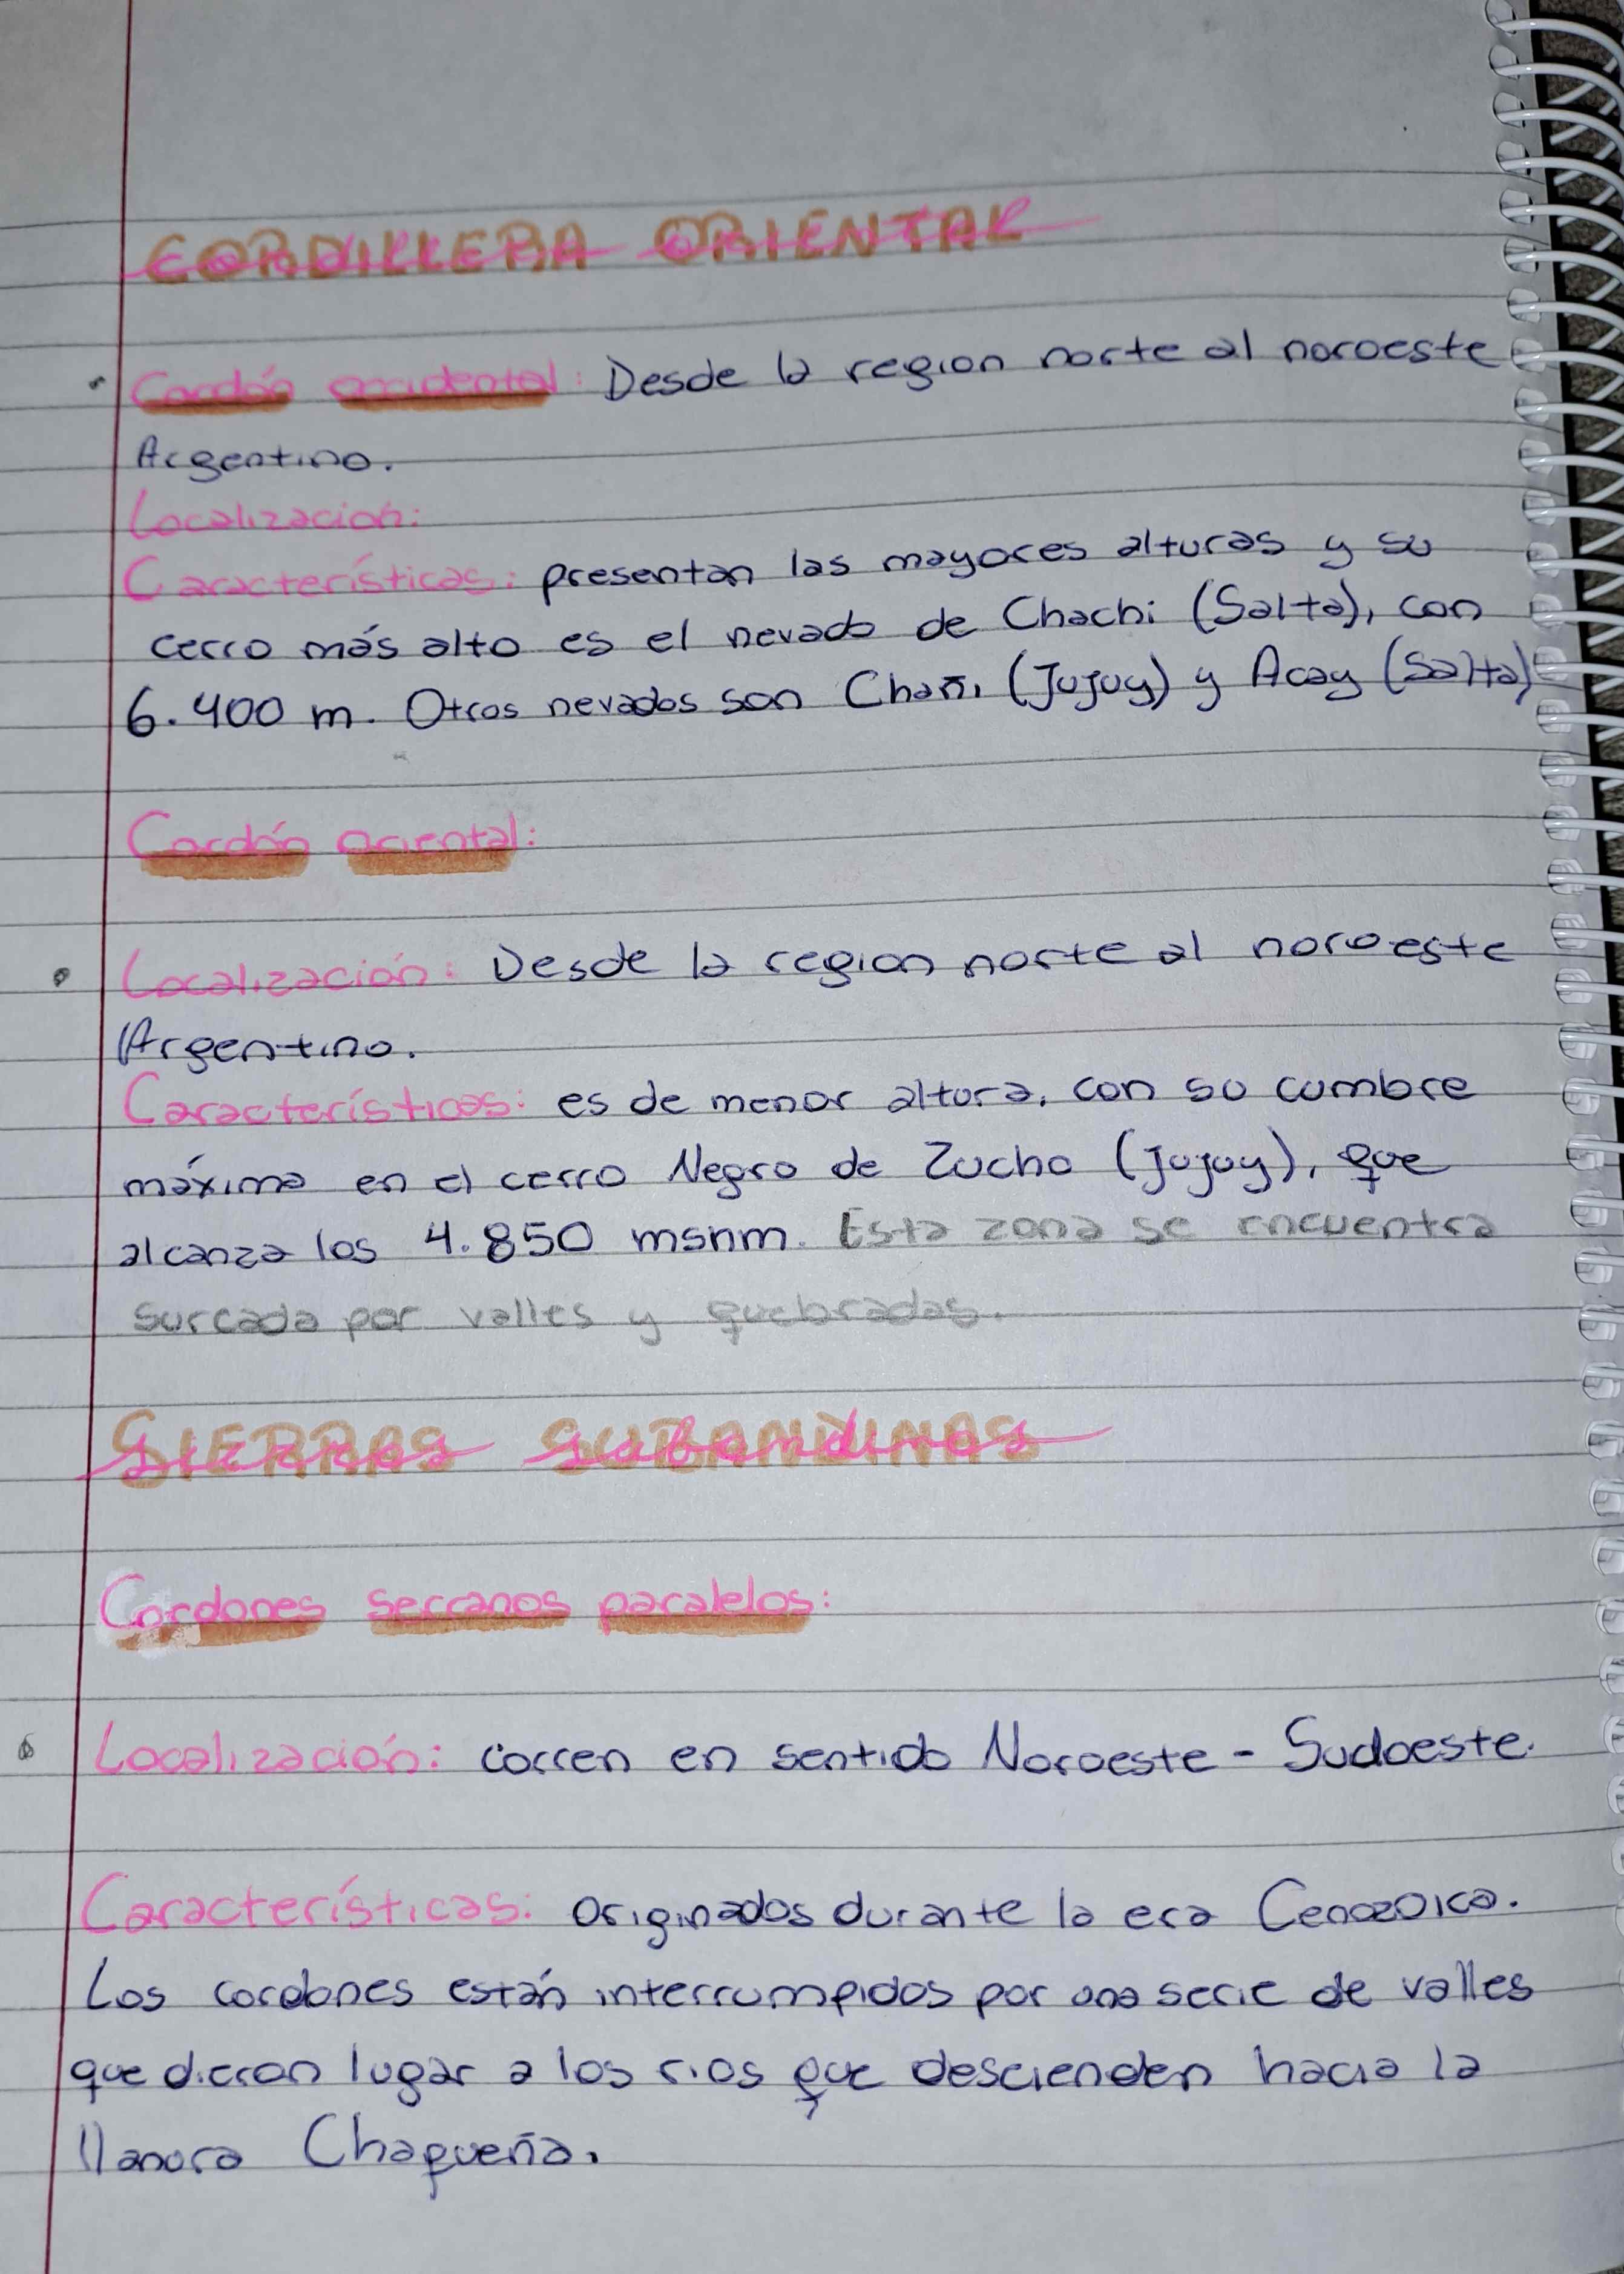 CORDILLERA ORIENTAL
Cordón occidental: Desde la region norte al noroeste
Argentino.
Localización:
Características: presentan las mayores alturas y su
cerro más alto es el nevado de Chachi (Salta), con
6.400 m. Otros nevados son Chañi (Jujuy) y Acay (Salta)
Cordón oriental:
Localización: Desde la region norte al noroeste
Argentino.
Características: es de menor altura, con su cumbre
máxima en el cerro Negro de Zucho (Jujuy), que
alcanza los 4.850 msnm. Esta zona se encuentra
surcada por valles y quebradas.
SIERRAS SUBANDINAS
Cordones serranos paralelos:
Localización: corren en sentido Noroeste - Sudoeste.
Características: Originados durante la era Cenozoica.
Los cordones están interrumpidos por una serie de valles
que dieron lugar a los rios que descienden hacia la
llanura Chaqueña.